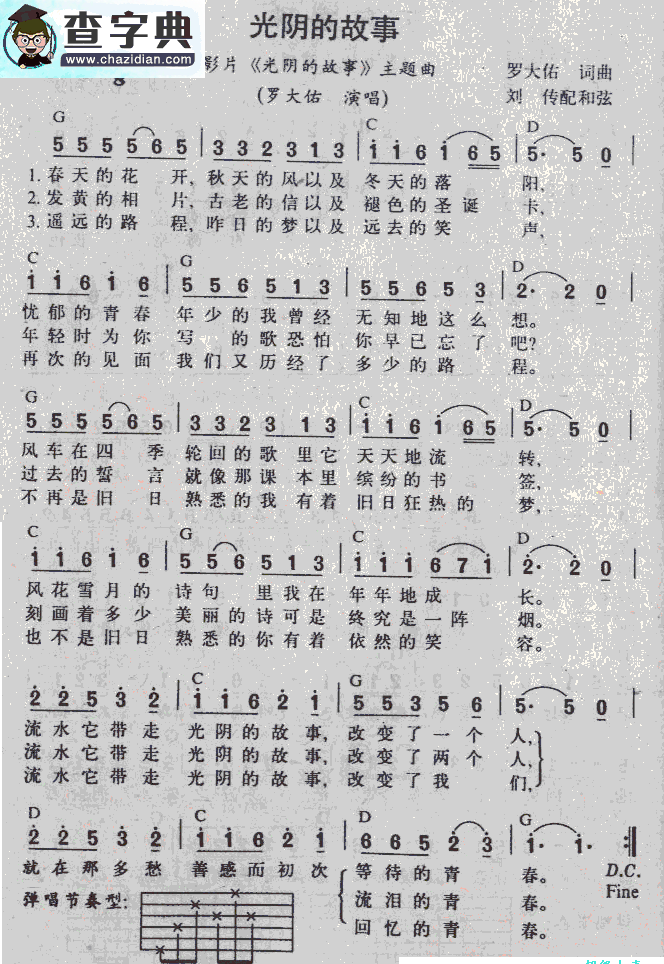 光阴的故事
查字典
www.chazidian.com
影片《光阴的故事》主题曲
罗大佑 词曲
(罗大佑 演唱)
刘 传配和弦
G C D
5 5 5 5 6 5 | 3 3 2 3 1 3 | i i 6 i 6 5 | 5· 5 0 |
1. 春天的花 开, 秋天的风以及 冬天的落 阳,
2. 发黄的相 片, 古老的信以及 褪色的圣诞 卡,
3. 遥远的路 程, 昨日的梦以及 远去的笑 声,
C G D
i i 6 i 6 | 5 5 6 5 1 3 | 5 5 6 5 3 | 2· 2 0 |
忧郁的青春 年少的我曾经 无知地这么 想。
年轻时为你 写 的歌恐怕 你早已忘了 吧?
再次的见面 我们又历经了 多少的路 程。
G C D
5 5 5 5 6 5 | 3 3 2 3 1 3 | i i 6 i 6 5 | 5· 5 0 |
风车在四 季 轮回的歌 里它 天天地流 转,
过去的誓 言 就像那课 本里 缤纷的书 签,
不再是旧 日 熟悉的我 有着 旧日狂热的 梦,
C G C D
i i 6 i 6 | 5 5 6 5 1 3 | i i i 6 7 i | 2· 2 0 |
风花雪月的 诗句 里我在 年年地成 长。
刻画着多少 美丽的诗可是 终究是一阵 烟。
也不是旧日 熟悉的你有着 依然的笑 容。
C G
2 2 5 3 2 | i i 6 2 i | 5 5 3 5 6 | 5· 5 0 |
流水它带走 光阴的故事, 改变了一个 人,
流水它带走 光阴的故事, 改变了两个 人,
流水它带走 光阴的故事, 改变了我 们,
D C D G
2 2 5 3 2 | i i 6 2 i | 6 6 5 2 3 | i· i· :||
就在那多愁 善感而初次 等待的青 春。 D.C.
弹唱节奏型: 流泪的青 春。 Fine
回忆的青 春。